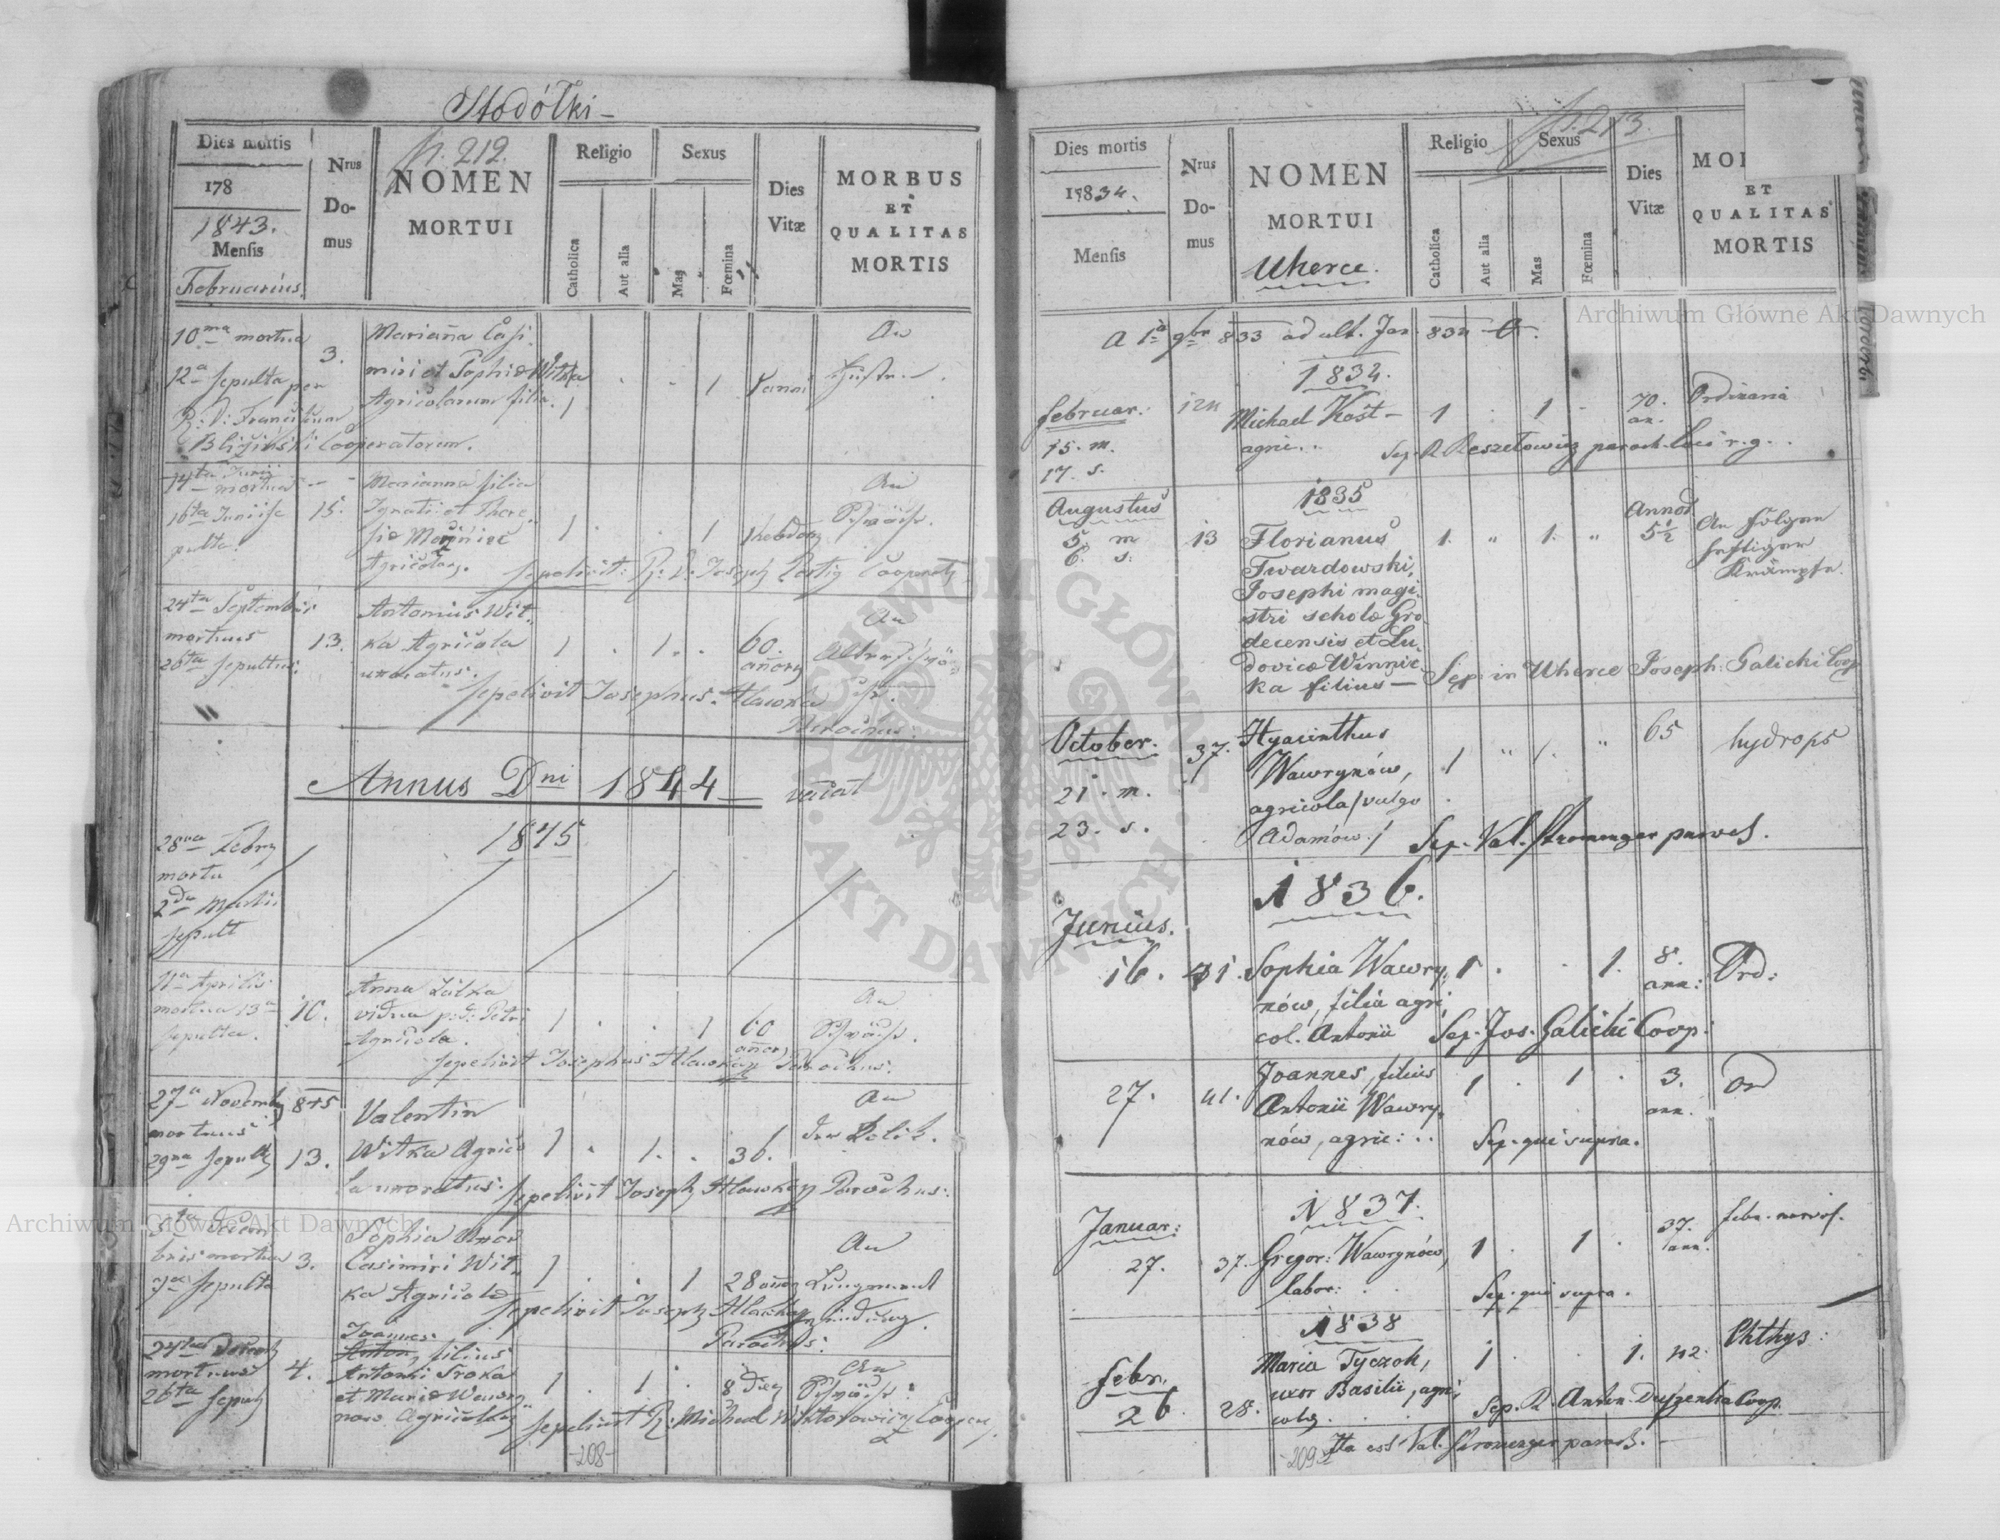 Stodółki
p. 212.
Dies mortis
178
1843.
Mensis
Februarius
Nrus
Do-
mus
NOMEN
MORTUI
Religio
Catholica
Aut alia
Sexus
Mas
Fœmina
Dies
Vitæ
MORBUS
ET
QUALITAS
MORTIS
10ma mortua
12a sepulta per
R: D: Franciskum
Cooperatorem.
3.
Marianna Casi-
miri et Sophiæ Witka
Agricolarum filia.
1
1
An
Husten.
14ta Junij
mortua
16ta Junii se
pulta.
15.
Marianna filia
Ignatii et There-
siæ
Agricolar.
1
1
An
Schwäche.
Sepelivit: R: D: Joseph Cooperat
24ta Septembris
mortuus
26ta sepultus.
13.
Antonius Wit-
ka Agricola
uxoratus.
1
1
60.
annor
An
Sepelivit Josephus Hlawka
Parochus.
Annus Dni 1844 vacat
1845
28va Febry
mortu
2da Martii
sepult
11a Aprilis
mortua 13a
sepulta.
10.
Anna
vidua p: d: Petri
Agricola.
1
1
60
annor
An
Schwäche.
Sepelivit Josephus Hlawka Parochus.
27a Novembr 845
mortuus
29na sepult
13.
Valentin
Witka Agrico
la uxoratus.
1
1.
36.
An
der Kolik.
Sepelivit Joseph Hlawka Parochus.
bris mortua
7ma sepulta
3.
Sophia Uxor
Casimiri Wit-
ka Agricolæ
1
1
28 annor
An
Sepelivit Joseph Hlawka
Parochus:
mortuus
26ta sepult
4.
Joannes
Anton, filius
Antonii Sroka
et Mariæ Wawry
now Agricolar
1
1
8 dies
An
Schwäche.
Sepelivit R: Michael Wiktorowicz Cooper
-208-
p. 213.
Dies mortis
1834.
Mensis
Nrus
Do-
mus
NOMEN
MORTUI
Uherce.
Religio
Catholica
Aut alia
Sexus
Mas
Fœmina
Dies
Vitæ
MO
ET
QUALITAS
MORTIS
A 1a 9br 833 ad ult. Jan. 834
1834.
Februar:
15. m.
17. s.
124
Michael Kost
agric.
1
1
70.
an.
Ordinaria
Sep. R Reszetowicz paroch. loci r. g.
1835
Augustus
5. m
6. s.
13
Florianus
Twardowski,
Josephi magi-
stri scholæ Gro-
decensis et Lu-
dovicæ Winnic-
ka filius
1.
"
1.
"
Annor
5½
An folgen
heftiger
Krämpfe.
Sep: in Uherce Joseph: Galicki Coop
October.
21. m.
23. s.
37.
Hyacinthus
Wawrynów,
agricola /vulgo
Adamów./
1
"
1.
"
65
hydrops
Sep. Val. Stromenger paroch.
1836.
Junius.
16.
41.
Sophia Wawry-
nów, filia agri-
col. Antonii
1
1.
8.
ann:
Ord:
Sep. Jos. Galicki Coop:
27.
41.
Joannes, filius
Antonii Wawry-
nów, agric:
1
1
3.
ann.
Ord
Sep. qui supra.
1837.
Januar:
27.
37.
Gregor: Wawrynów,
labor:
1
1
37.
ann.
febr. nervos.
Sep. qui supra.
1838
Febr.
26.
28.
Maria Tyczok,
uxor Basilii, agri-
colæ
1
1.
42.
Phthys:
Sep. R. Anton. Coop.
Ita est Val. Stromenger paroch.
-209-
Archiwum Główne Akt Dawnych
Archiwum Główne Akt Dawnych
ARCHIWUM GŁÓWNE AKT DAWNYCH